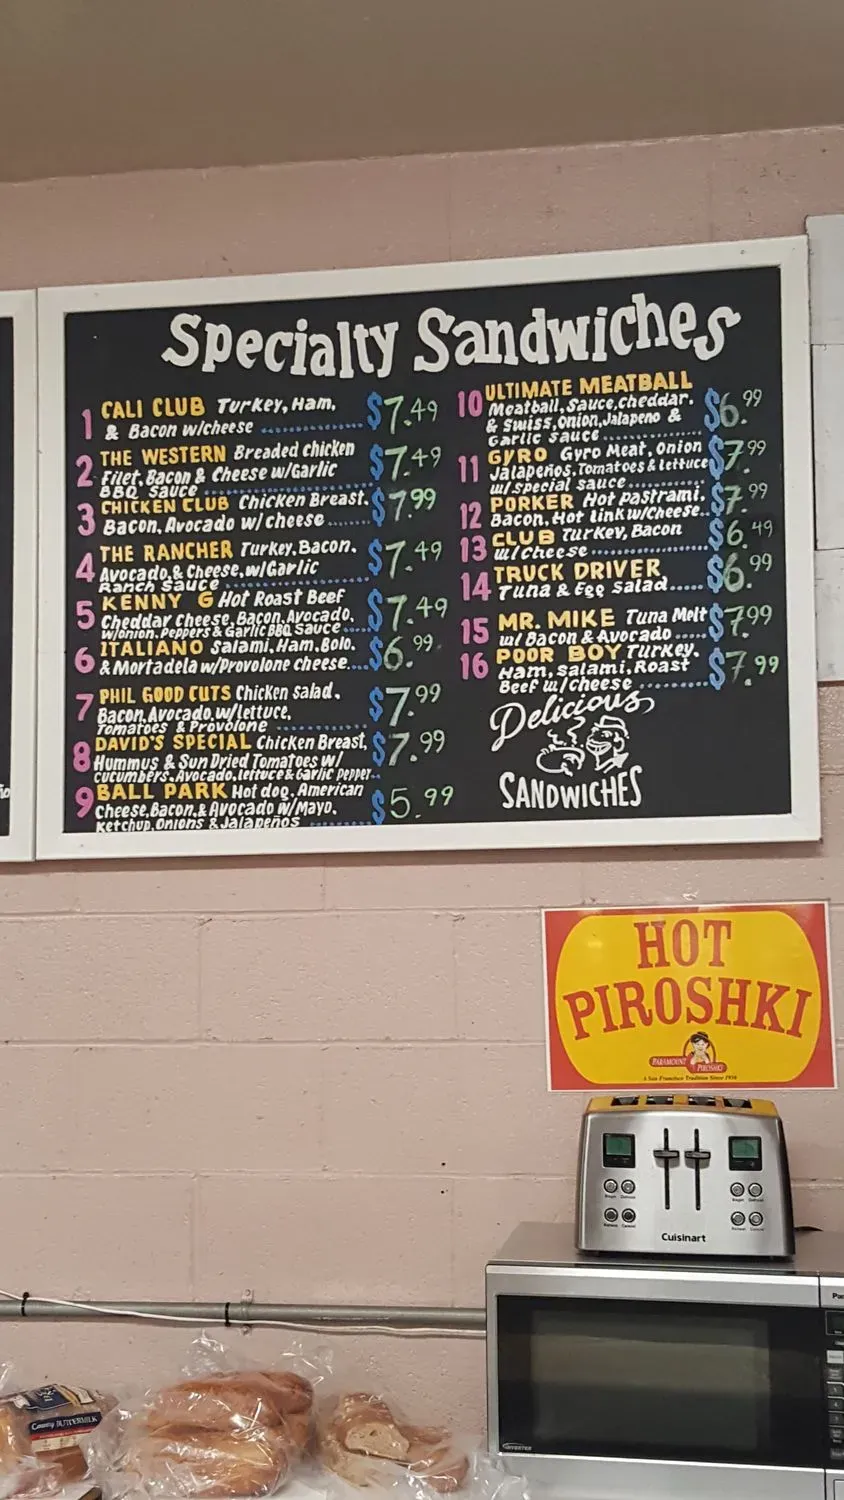 Specialty Sandwiches
1 CALI CLUB Turkey, Ham,
& Bacon w/cheese $7.49
2 THE WESTERN Breaded chicken
Filet, Bacon & Cheese w/Garlic
BBQ Sauce $7.49
3 CHICKEN CLUB Chicken Breast,
Bacon, Avocado w/cheese $7.99
4 THE RANCHER Turkey, Bacon,
Avocado, & Cheese, w/Garlic
Ranch Sauce $7.49
5 KENNY G Hot Roast Beef
Cheddar Cheese, Bacon, Avocado,
w/onion, Peppers & Garlic BBQ Sauce $7.49
6 ITALIANO Salami, Ham, Bolo,
& Mortadela w/Provolone cheese $6.99
7 PHIL GOOD CUTS Chicken salad,
Bacon, Avocado, w/lettuce,
Tomatoes & Provolone $7.99
8 DAVID'S SPECIAL Chicken Breast,
Hummus & Sun Dried Tomatoes w/
cucumbers, Avocado, lettuce & Garlic Pepper $7.99
9 BALL PARK Hot dog, American
Cheese, Bacon, & Avocado w/Mayo,
Ketchup, Onions & Jalapeños $5.99
10 ULTIMATE MEATBALL
Meatball, Sauce, Cheddar,
& Swiss, Onion, Jalapeno &
Garlic Sauce $6.99
11 GYRO Gyro Meat, Onion
Jalapeños, Tomatoes & lettuce
w/special sauce $7.99
12 PORKER Hot Pastrami,
Bacon, Hot link w/Cheese $7.99
13 CLUB Turkey, Bacon
w/Cheese $6.49
14 TRUCK DRIVER
Tuna & Egg salad $6.99
15 MR. MIKE Tuna Melt
w/ Bacon & Avocado $7.99
16 POOR BOY Turkey,
Ham, salami, Roast
Beef w/cheese $7.99
Delicious
SANDWICHES
HOT
PIROSHKI
PARAMOUNT PIROSHKI
A San Francisco Tradition Since 1956
Cuisinart
INVERTER
BUTTERMILK